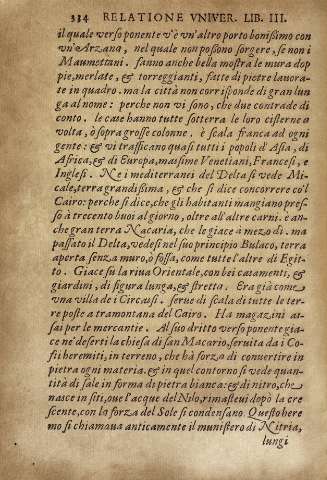 334 RELATIONE VNIVER. LIB. III.
il quale verso ponente v'è vn'altro porto bonissimo con
vn'Arzana, nel quale non possono sorgere, se non i
Maumettani. fanno anche bella mostra le mura dop
pie, merlate, & torreggianti, fatte di pietre lauora-
te in quadro. ma la città non corrisponde di gran lun
ga al nome: perche non vi sono, che due contrade di
conto. le case hanno tutte sotterra le loro cisterne a
volta, ò sopra grosse colonne. è scala franca ad ogni
gente: & vi trafficano quasi tutti i popoli d'Asia, di
Africa, & di Europa, massime Venetiani, Francesi, e
Inglesi. Ne i mediterranei del Delta si vede Mi-
cale, terra grandissima, & che si dice concorrere co'l
Cairo: perche si dice, che gli habitanti mangiano pres-
so à trecento buoi al giorno, oltre all'altre carni. è an-
che gran terra Nacaria, che le giace à mezo dì. ma
passato il Delta, vedesi nel suo principio Bulaco, terra
aperta senza muro, ò fossa, come tutte l'altre di Egit-
to. Giace sù la riua Orientale, con bei casamenti, &
giardini, di figura lunga, & stretta. Era già come
vna villa de i Circassi. serue di scala di tutte le ter-
re poste a tramontana del Cairo. Ha magazini as-
sai per le mercantie. Al suo dritto verso ponente gia-
ce ne' deserti la chiesa di san Macario, seruita da i Co-
fti heremiti, in terreno, che hà forza di conuertire in
pietra ogni materia, & in quel contorno si vede quan-
tità di sale in forma di pietra bianca: & di nitro, che
nasce in siti, oue l'acque del Nilo, rimasteui dopò la cre
scente, con la forza del Sole si condensano. Questo here
mo si chiamaua anticamente il munistero di Nitria,
lungi